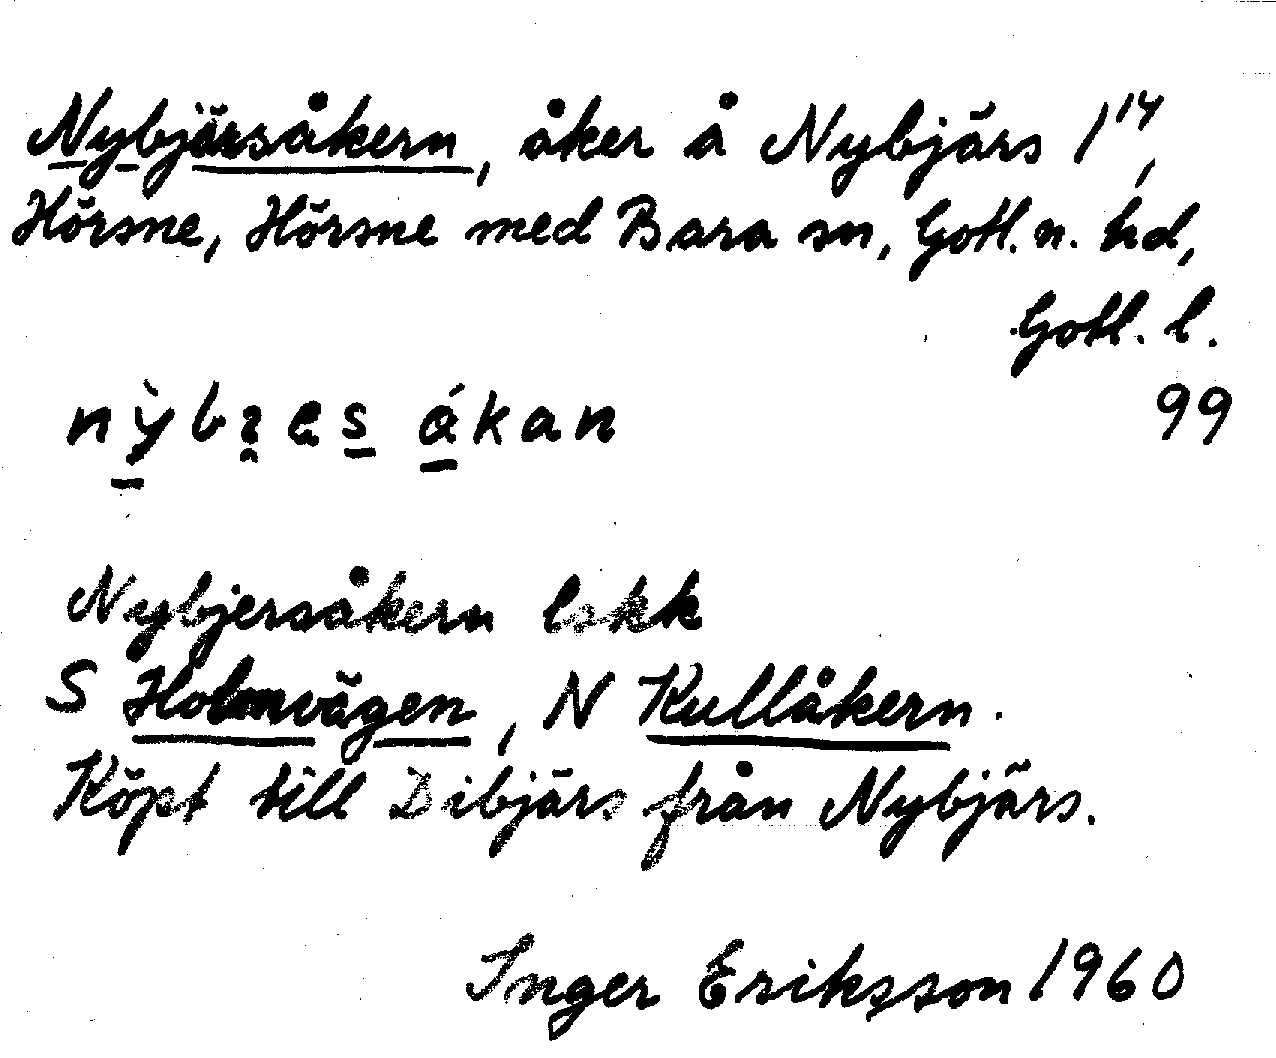 Nybjärsåkern, åker å Nybjärs 1¹⁴,
Hörsne, Hörsne med Bara sn, Gotl. n. hd,
Gotl. l.
99
Nybjersåkern lskk
S Holmvägen, N Kullåkern.
Köpt till Dibjärs från Nybjärs.
Inger Eriksson 1960